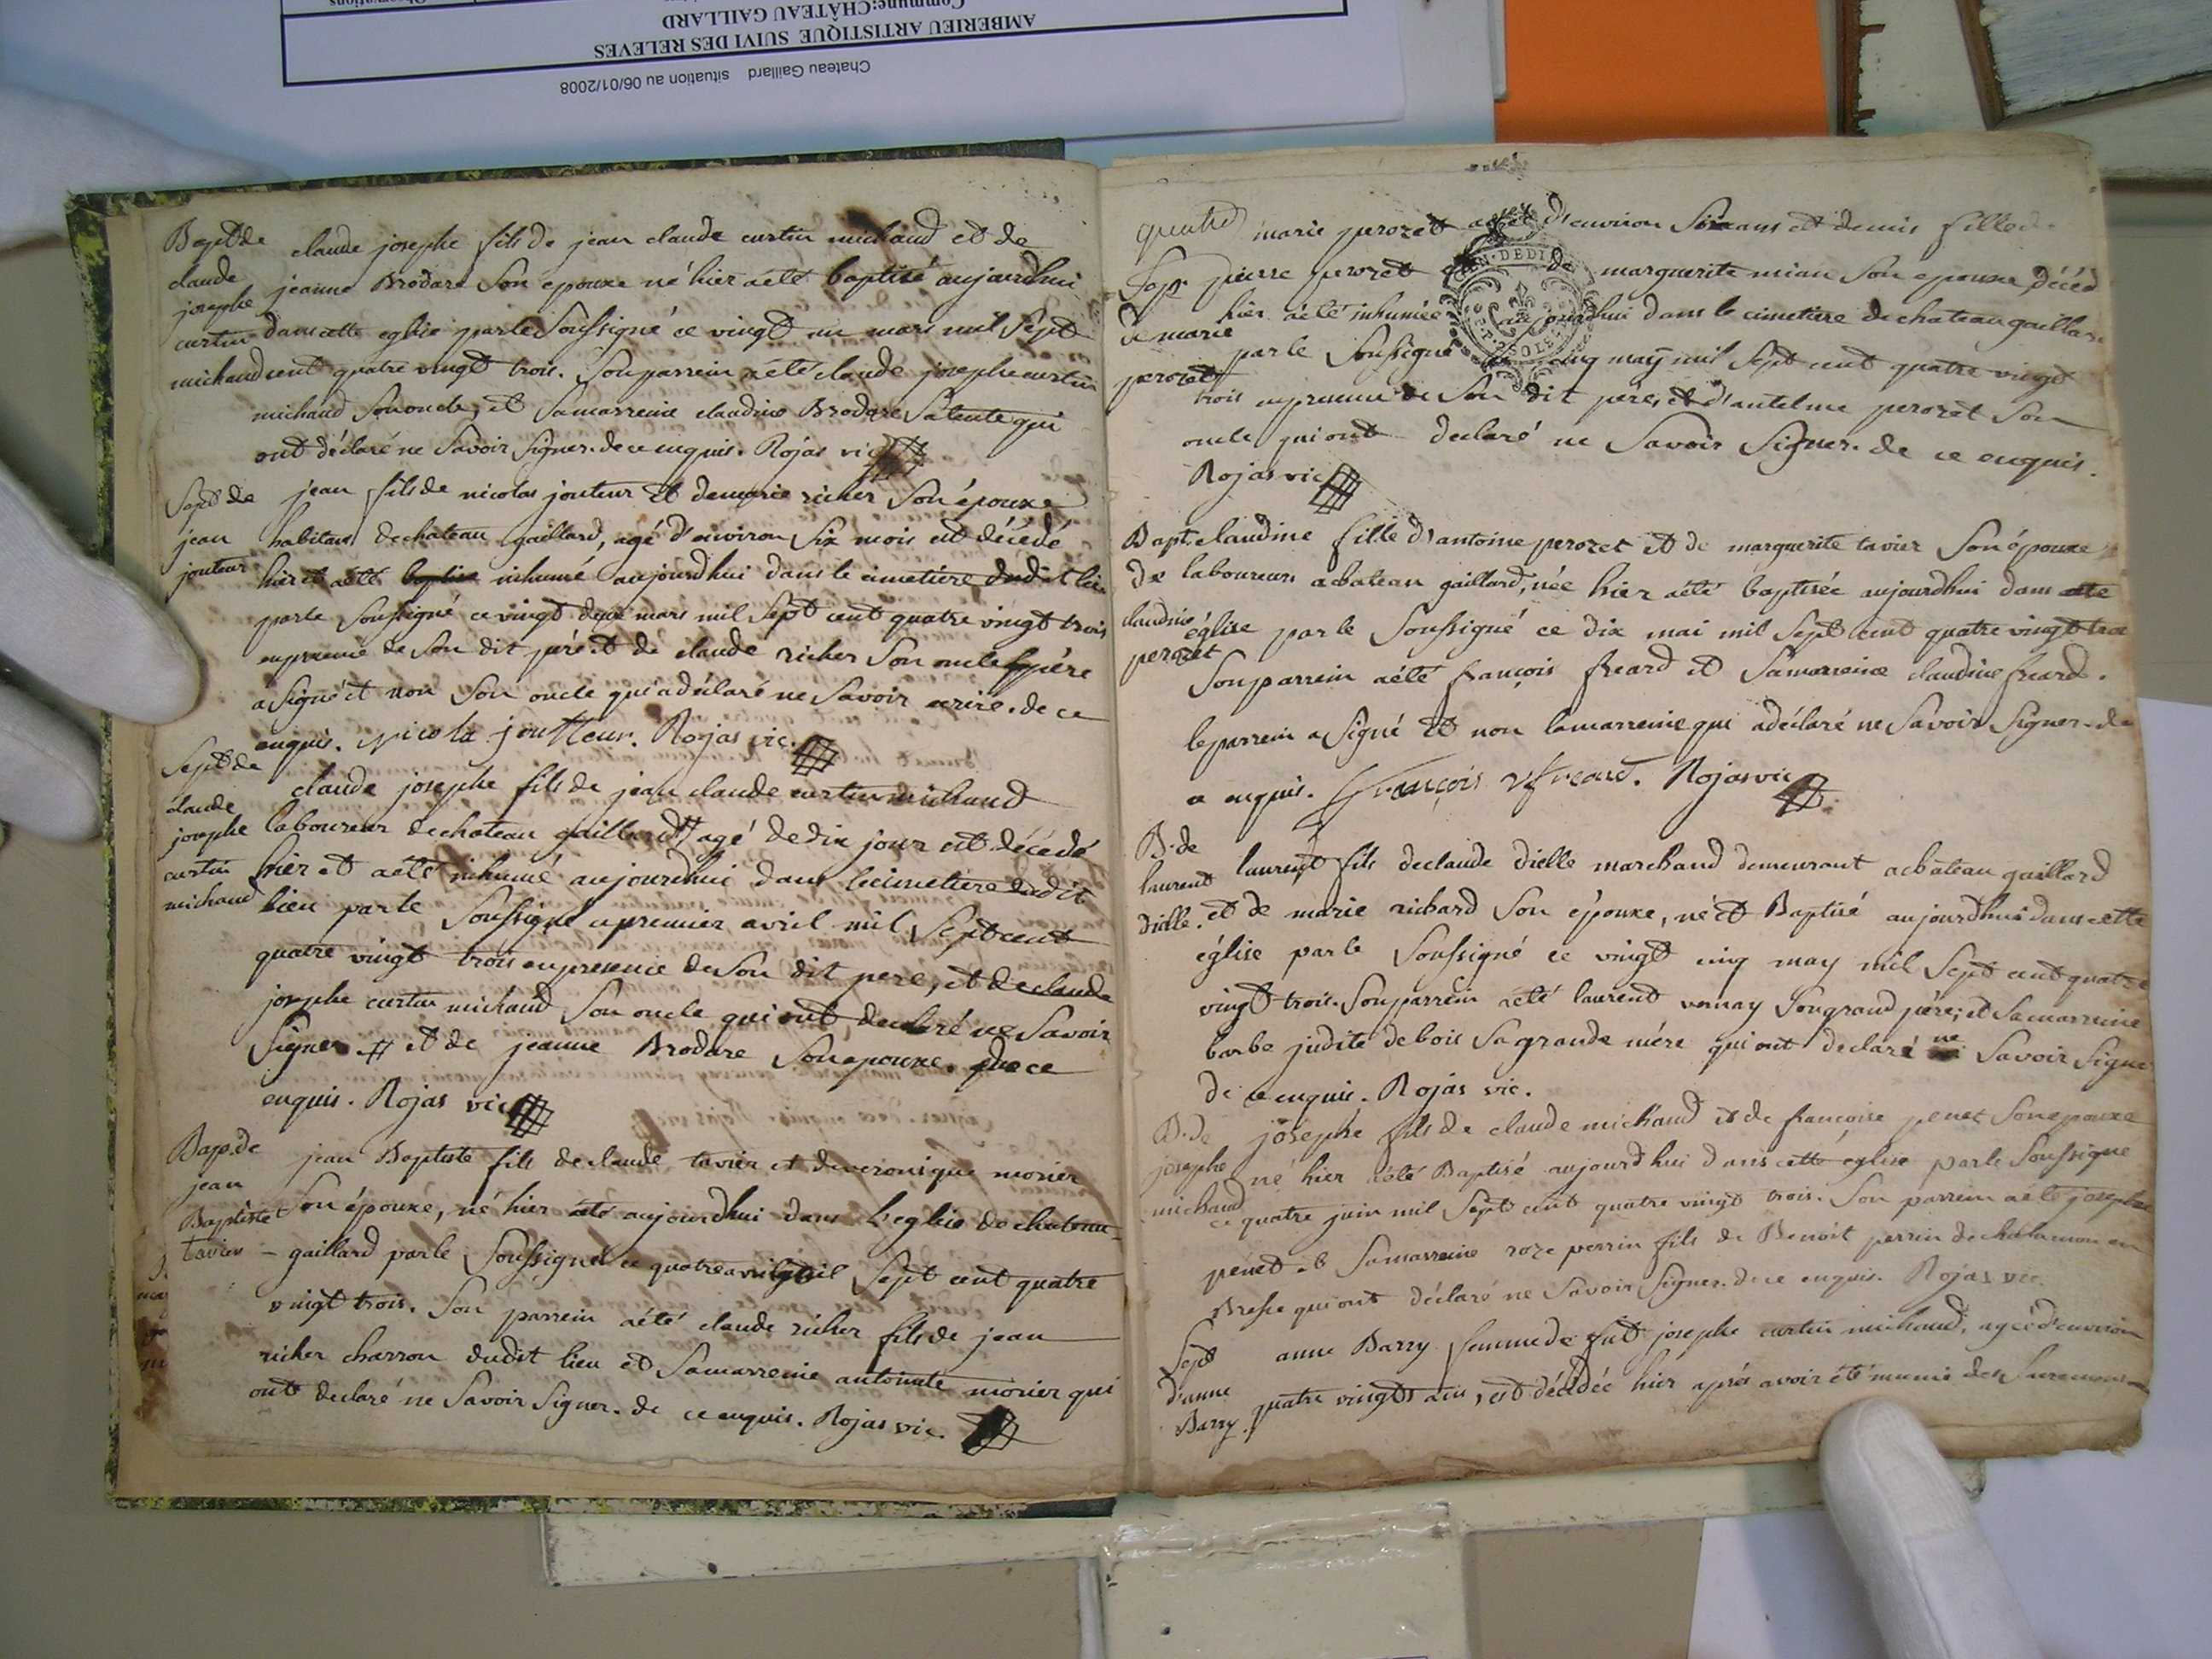 Chateau Gaillard situation au 06/01/2008
AMBERIEU ARTISTIQUE SUIVI DES RELEVES
Commune:CHÂTEAU GAILLARD
Observations
Bapt de claude joseph curtin michaud
claude josephe fils de jean claude curtin michaud et de
jeanne Brodare Son epouxe né hier a été baptisé aujourdhui
dans cette eglise par le Soussigné ce vingt un mars mil Sept
cent quatre vingt trois. Son parrein a été claude josephe curtin
michaud Son oncle, et Sa marreine claudine Brodare Sa tente qui
ont déclaré ne Savoir Signer. de ce enquis. Rojas vic
Sept de jean jouteur
jean fils de nicolas jouteur et de marie richer Son épouxe
habitans de chateau gaillard, agé d'environ Six mois est décédé
hier et a été baptise inhumé aujourdhui dans le cimetiére dudit lieu
par le Soussigné ce vingt deux mars mil Sept cent quatre vingt trois
en presence de Son dit pére et de claude richer Son oncle le pére
a Signé et non Son oncle qui a déclaré ne Savoir ecrire. de ce
enquis. Nicola joutteur. Rojas vic.
Sept de claude josephe curtin michaud
claude josephe fils de jean claude curtin michaud
laboureur de chateau gaillard agé de dix jour est décedé
hier et a été inhumé aujourdhui dans le cimetiere dudit
lieu par le Soussigné ce premier avril mil Sept cent
quatre vingt trois en presence de Son dit pere, et de claude
josephe curtin michaud Son oncle qui ont declaré ne Savoir
Signer et de jeanne Brodare Son epouxe. de ce
enquis. Rojas vic
Bap. de jean Baptiste tavier
jean Baptiste fils de claude tavier et de veronique monier
Son épouxe, né hier a été aujourdhui dans l'eglise de chateau-
gaillard par le Soussigné ce quatre avril mil Sept cent quatre
vingt trois. Son parrein a été claude richer fils de jean
richer charron dudit lieu et Sa marreine antoinete monier qui
ont declaré ne Savoir Signer. de ce enquis. Rojas vic.
quatre
Sep. de marie perozet
marie perozet agée d'environ Six ans et demis fille de
pierre perozet et de marguerite mian Son epouxe décéd
hier a été inhumée aujourdhui dans le cimetiere de chateau gaillar
par le Soussigné ce cinq maÿ mil Sept cent quatre vingt
trois en presence de Son dit pere, et d'antelme perozet Son
oncle qui ont declaré ne Savoir Signer. de ce enquis.
Rojas vic
Bapt. de claudine perozet
claudine fille d'antoine perozet et de marguerite tavier Son épouxe
laboureurs a chateau gaillard, née hier a été baptisée aujourdhui dans cette
église par le Soussigné ce dix mai mil Sept cent quatre vingt trois
Son parrein a été françois freard et Sa marreine claudine freard.
le parrein a Signé et non la marreine qui a déclaré ne Savoir Signer. de
ce enquis. françois freard. Rojas vic
B. de laurent dielle.
laurent fils de claude dielle marchand demeurant a chateau gaillard
et de marie richard Son épouxe, né et Baptisé aujourdhui dans cette
église par le Soussigné ce vingt cinq may mil Sept cent quatre
vingt trois. Son parrein a été laurent vernay Son grand pére; et Sa marreine
barbe judite debois Sa grande mére qui ont declaré ne Savoir Signe
de ce enquis. Rojas vic.
B. de josephe michaud
josephe fils de claude michaud et de françoise penet Son epouxe
né hier a été Baptisé aujourdhui dans cette église par le Soussigné
ce quatre juin mil Sept cent quatre vingt trois. Son parrein a été josephe
penet et Sa marreine roze perrin fils de Benoit perrin de chalamon en
Bresse qui ont déclaré ne Savoir Signer. de ce enquis. Rojas vic.
Sept d'anne Barry.
anne Barry femme de fut josephe curtin michaud, agée d'environ
quatre vingts ans, est décédée hier aprés avoir été munie des Sacremens